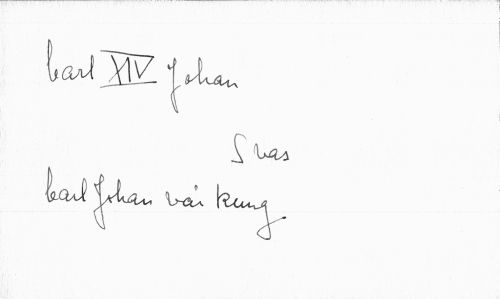 Carl XIV Johan
S vas
Carl Johan vår kung.